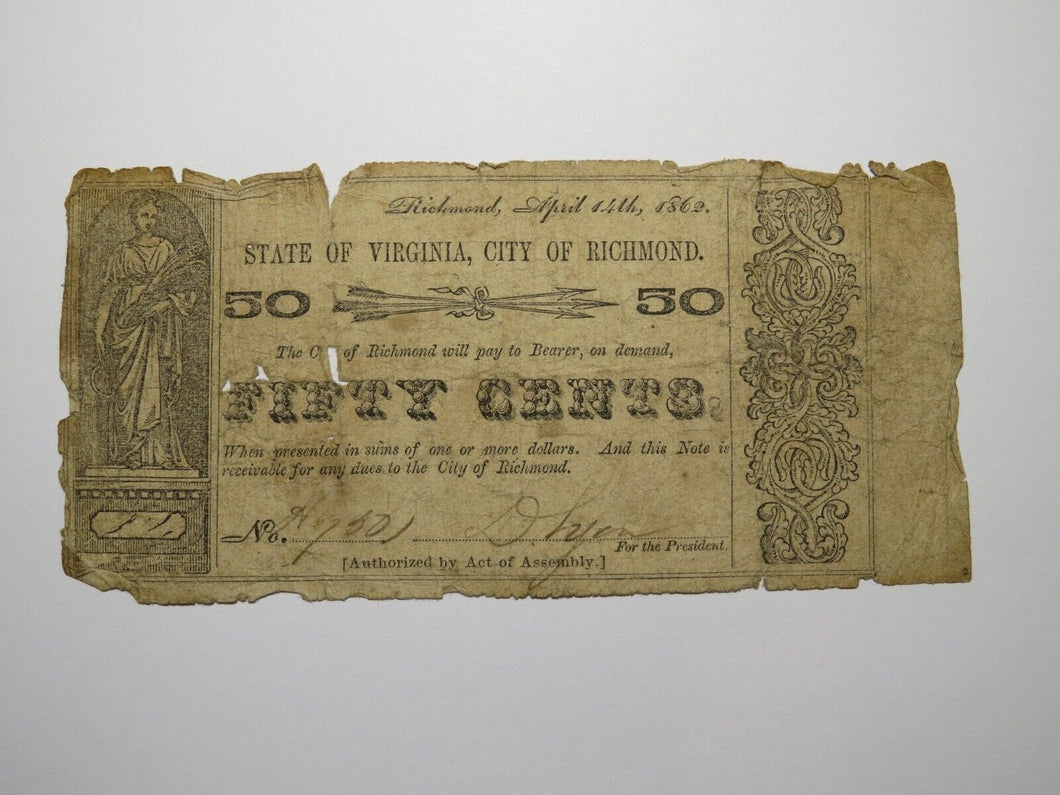 Richmond, April 14th, 1862.
STATE OF VIRGINIA, CITY OF RICHMOND.
50 50
The C of Richmond will pay to Bearer, on demand,
FIFTY CENTS.
When presented in sums of one or more dollars. And this Note is
receivable for any dues to the City of Richmond.
No.
For the President.
[Authorized by Act of Assembly.]